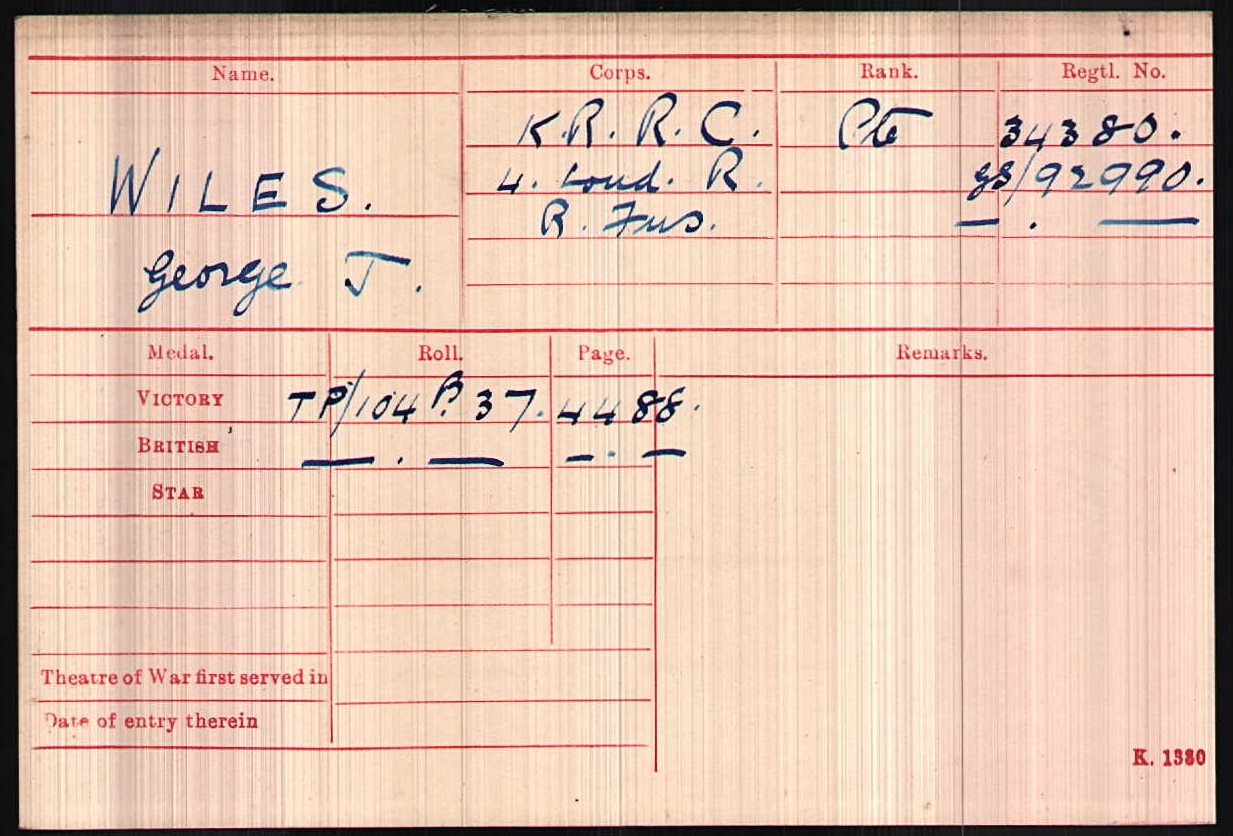 Name. Corps. Rank. Regtl. No.
K.R.R.C. Pte 34380.
WILES. 4. Lond. R. GS/92990.
R. Fus. — . —
George J.
Medal. Roll. Page. Remarks.
VICTORY TP/104 B.37. 4488.
BRITISH — . — — . —
STAR
Theatre of War first served in
Date of entry therein
K. 1380